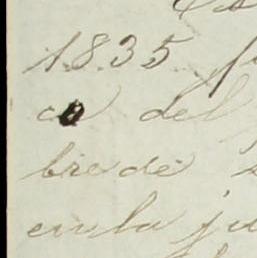 1835
ca del
bre de
en la ju